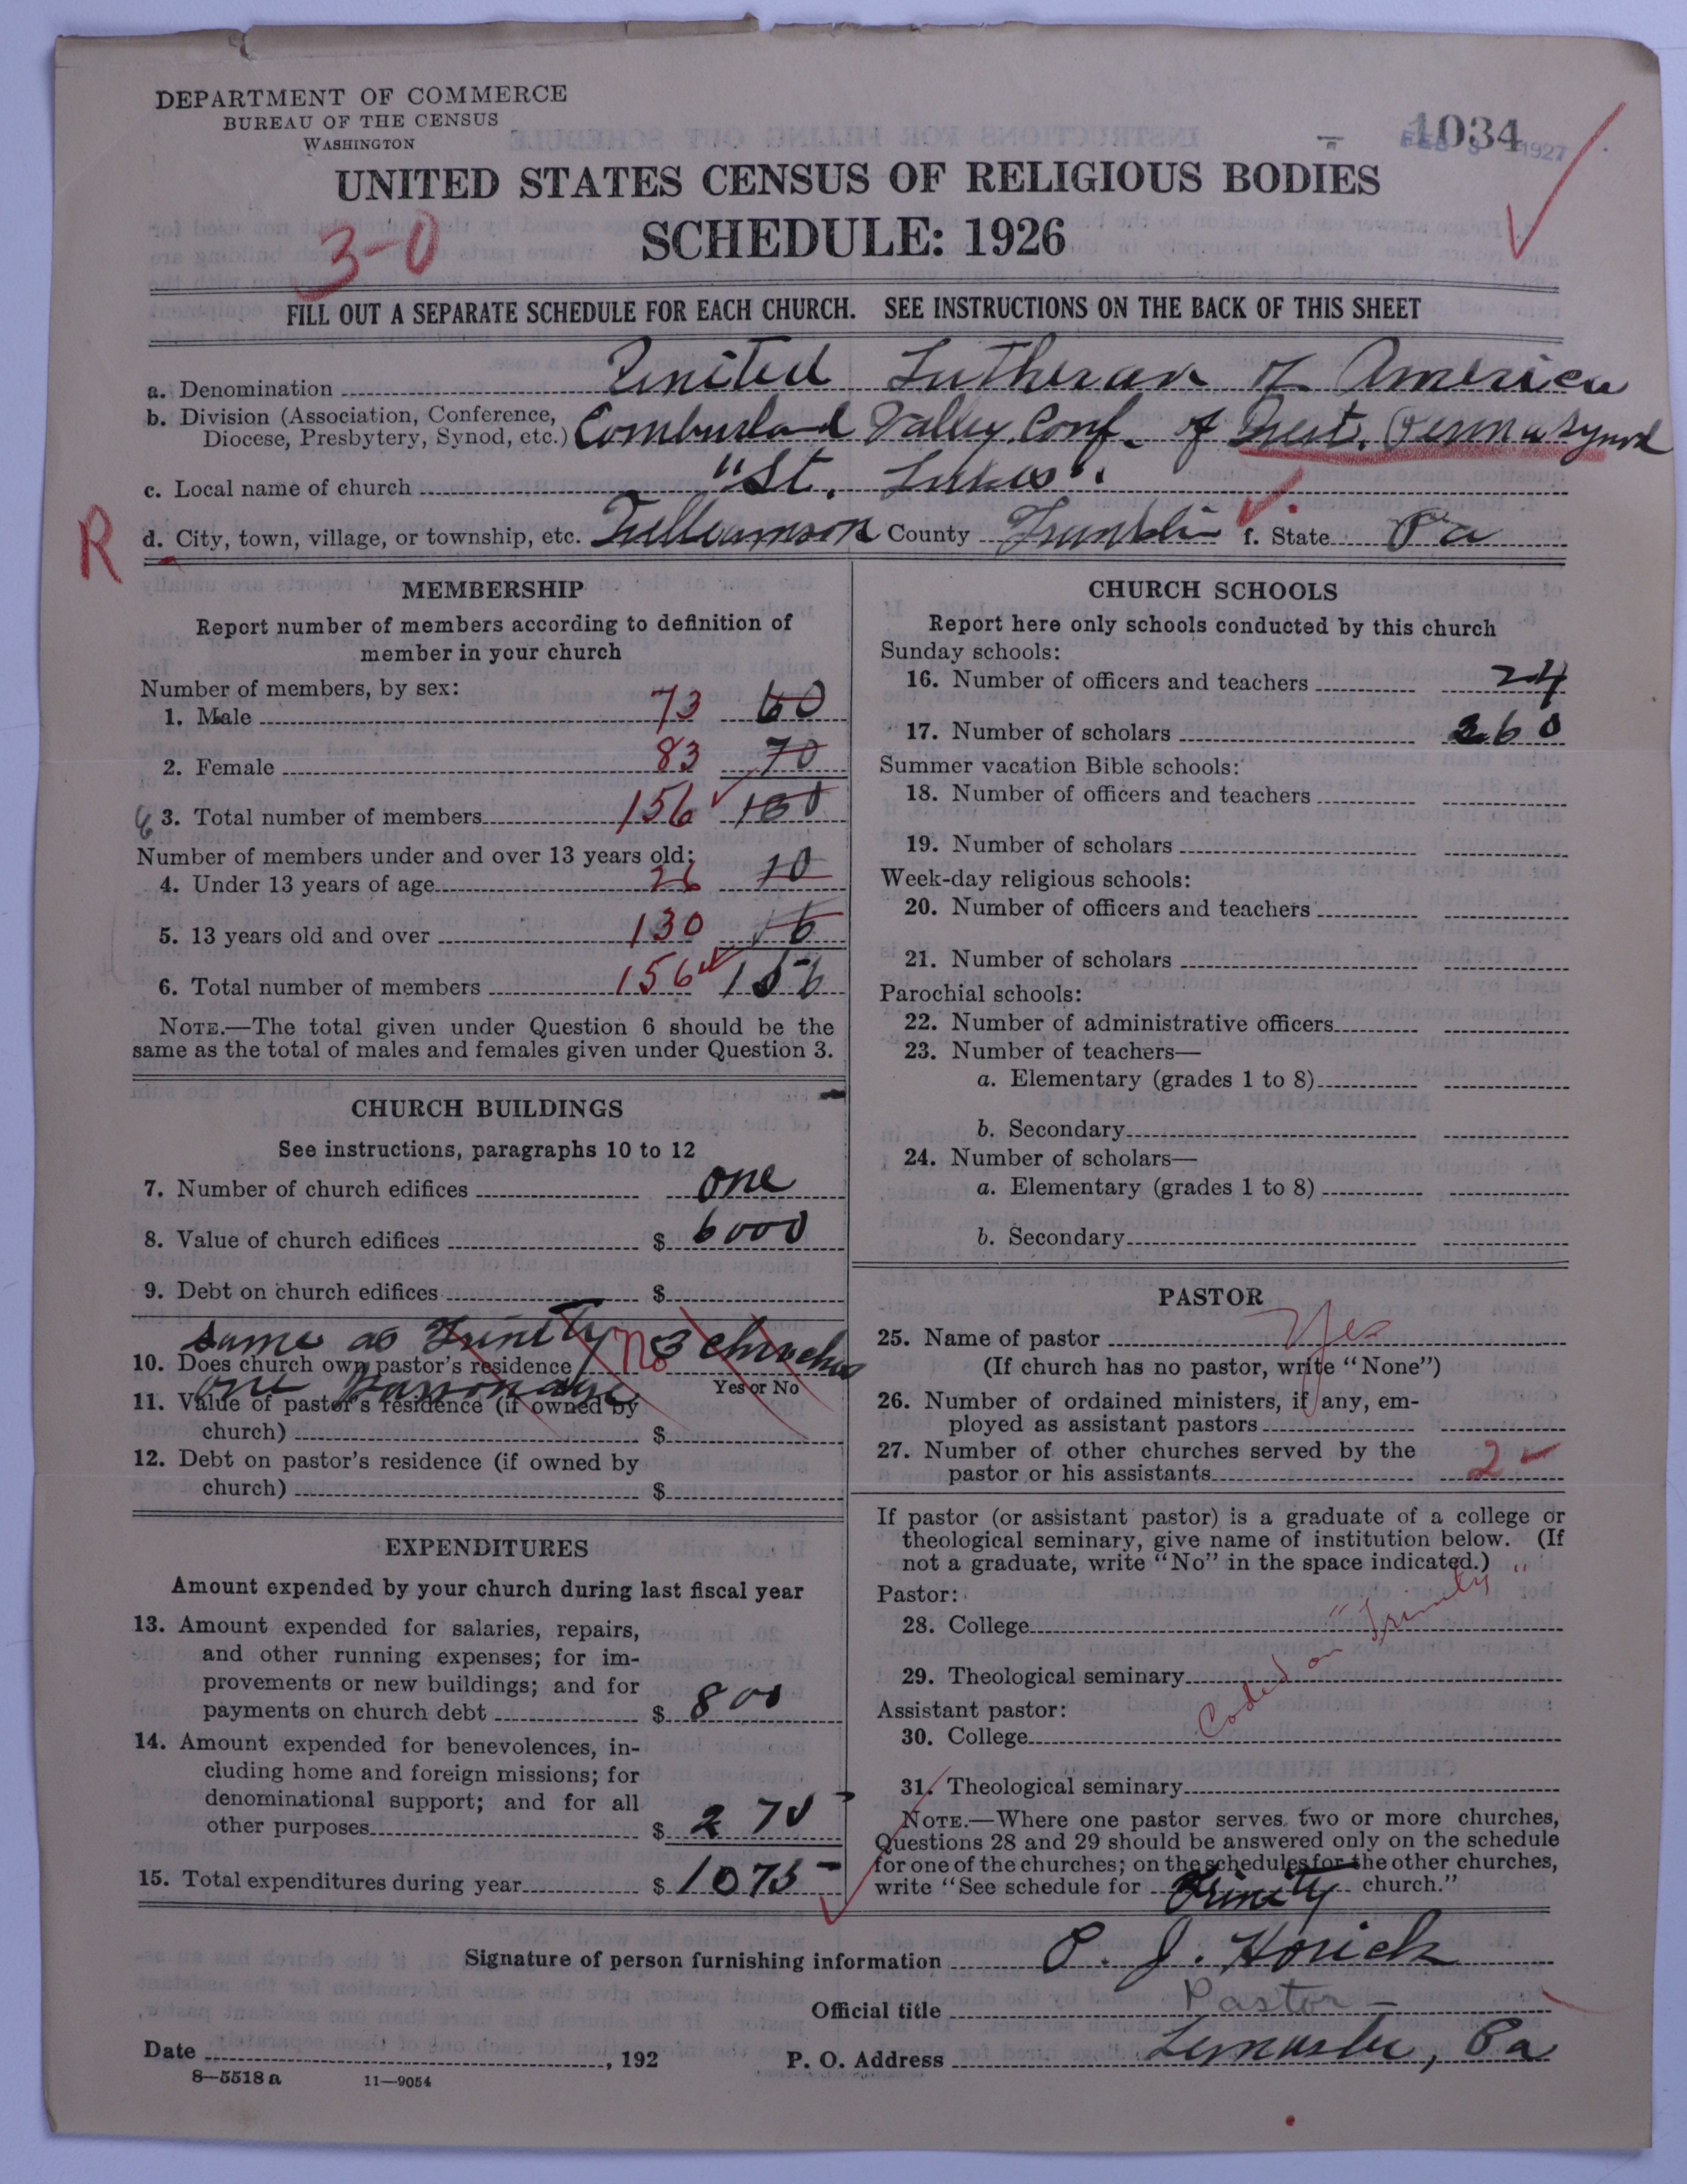 DEPARTMENT OF COMMERCE
BUREAU OF THE CENSUS
WASHINGTON
1034
1927
UNITED STATES CENSUS OF RELIGIOUS BODIES
SCHEDULE: 1926
3-0
FILL OUT A SEPARATE SCHEDULE FOR EACH CHURCH. SEE INSTRUCTIONS ON THE BACK OF THIS SHEET
a. Denomination United Lutheran of America
b. Division (Association, Conference,
Diocese, Presbytery, Synod, etc.) Cumberland Valley Conf. of West. Penna Synod
c. Local name of church "St. Lukes".
R
d. City, town, village, or township, etc. Williamson County Franklin f. State Pa
MEMBERSHIP
Report number of members according to definition of
member in your church
Number of members, by sex:
1. Male 73 60
2. Female 83 70
3. Total number of members 156 130
Number of members under and over 13 years old:
4. Under 13 years of age 26 10
5. 13 years old and over 130 16
6. Total number of members 156 156
NOTE.—The total given under Question 6 should be the
same as the total of males and females given under Question 3.
CHURCH BUILDINGS
See instructions, paragraphs 10 to 12
7. Number of church edifices one
8. Value of church edifices $ 6000
9. Debt on church edifices $
same as Trinity 3 churches
10. Does church own pastor's residence No
Yes or No
one Parsonage
11. Value of pastor's residence (if owned by
church) $
12. Debt on pastor's residence (if owned by
church) $
EXPENDITURES
Amount expended by your church during last fiscal year
13. Amount expended for salaries, repairs,
and other running expenses; for im-
provements or new buildings; and for
payments on church debt $ 800
14. Amount expended for benevolences, in-
cluding home and foreign missions; for
denominational support; and for all
other purposes $ 275
15. Total expenditures during year $ 1075
CHURCH SCHOOLS
Report here only schools conducted by this church
Sunday schools:
16. Number of officers and teachers 24
17. Number of scholars 260
Summer vacation Bible schools:
18. Number of officers and teachers
19. Number of scholars
Week-day religious schools:
20. Number of officers and teachers
21. Number of scholars
Parochial schools:
22. Number of administrative officers
23. Number of teachers—
a. Elementary (grades 1 to 8)
b. Secondary
24. Number of scholars—
a. Elementary (grades 1 to 8)
b. Secondary
PASTOR
25. Name of pastor Yes
(If church has no pastor, write "None")
26. Number of ordained ministers, if any, em-
ployed as assistant pastors
27. Number of other churches served by the
pastor or his assistants 2
If pastor (or assistant pastor) is a graduate of a college or
theological seminary, give name of institution below. (If
not a graduate, write "No" in the space indicated.)
Pastor:
28. College
29. Theological seminary
Coded on "Trinity"
Assistant pastor:
30. College
31. Theological seminary
NOTE.—Where one pastor serves two or more churches,
Questions 28 and 29 should be answered only on the schedule
for one of the churches; on the schedules for the other churches,
write "See schedule for Trinity church."
Signature of person furnishing information P. J. Horick
Official title Pastor
Date , 192
P. O. Address Lemaster, Pa
8—5518 a 11—9054